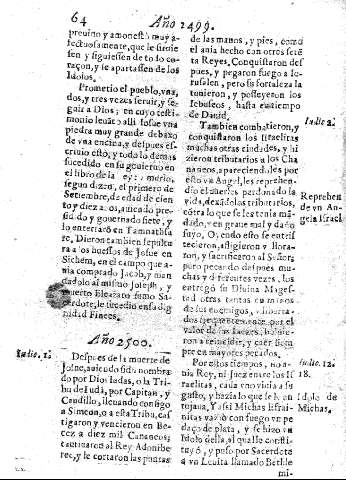 64
Año 2499.
preuino y amonestò muy a-
fectuosamente, que le siruie
sen y siguiessen de todo co-
raçon, y se apartassen de los
Idolos.
Prometio el pueblo, vna,
dos, y tres vezes seruir, y se-
guir a Dios; en cuyo testi-
monio leuãto alli Iosue vna
piedra muy grande debaxo
de vna encina, y despues es-
criuio esto, y todo lo demas
sucedido en su gouierno en
el libro de la ley:
segun dizen, el primero de
Setiembre, de edad de cien
to y diez años, auiendo presi-
dido y gouernado siete, y
lo enterrarõ en Tamnathsa
re, Dieron tambien sepultu
ra a los huessos de Iosue en
Sichem, en el campo que a-
uia comprado Jacob, y man
dadolo al mismo Ioseph, y
muerto Eleazaro sumo Sa-
cerdote, le sucedio en su dig
nidad Finees.
Año 2500.
Iudic. 1.
Despues de la muerte de
Iosue, auiendo sido nombra
do por Dios Iudas, o la Tri-
bu de Iudà, por Capitan, y
Caudillo, lleuando consigo
a Simeon, o a esta Tribu, cas
tigaron y vencieron en Be-
zec a diez mil Cananeos;
cautinaron al Rey Adonibe
zec, y le cortaron las puntas
de las manos, y pies, como
el auia hecho con otros setẽ
ta Reyes, Conquistaron des
pues, y pegaron fuego a Ie-
rusalen, pero su fortaleza la
tuuieron, y posseyeron los
Iebuseos, hasta en tiempo
de Dauid.
Iudic. 2.
Tambien combatieron, y
conquistaron los Israelitas
muchas otras ciudades, y hi
zieron tributarios a los Cha
naneos, apareciendoles por
esto vn Angel, les reprehen-
dio el auerles perdonado la
vida, dexãdolos tributarios,
cõtra lo que se les tenia mã-
dado, y en graue mal y daño
suyo, O, endo esto se entris
tecieron, afligieron y llora-
ron, y sacrificaron al Señor;
pero pecando despues mu-
chas y diferentes vezes, los
entregò su Diuina Mages-
tad otras tantas en manos
de sus enemigos,
por el
valor de sus Iuezes, boluie-
ron a reincidir, y caer siem
pre en mayores pecados.
Reprehẽ
de vn An
gel a Israel
Iudic. 12.
18.
Por estos tiempos, no a-
uia Rey, ni Iuez entre los Is
raelitas, cada vno viuia a su
gusto, y hazia lo que se le an
tojaua, Y assi Michas Efrai-
nitas vaziò con fuego vn pe
daço de plata, y se hizo vn
Idolo della, al qual le consti-
tuyò, y puso por Sacerdote
a vn Leuita llamado Bethle
Idolo de
Michas.
mi-